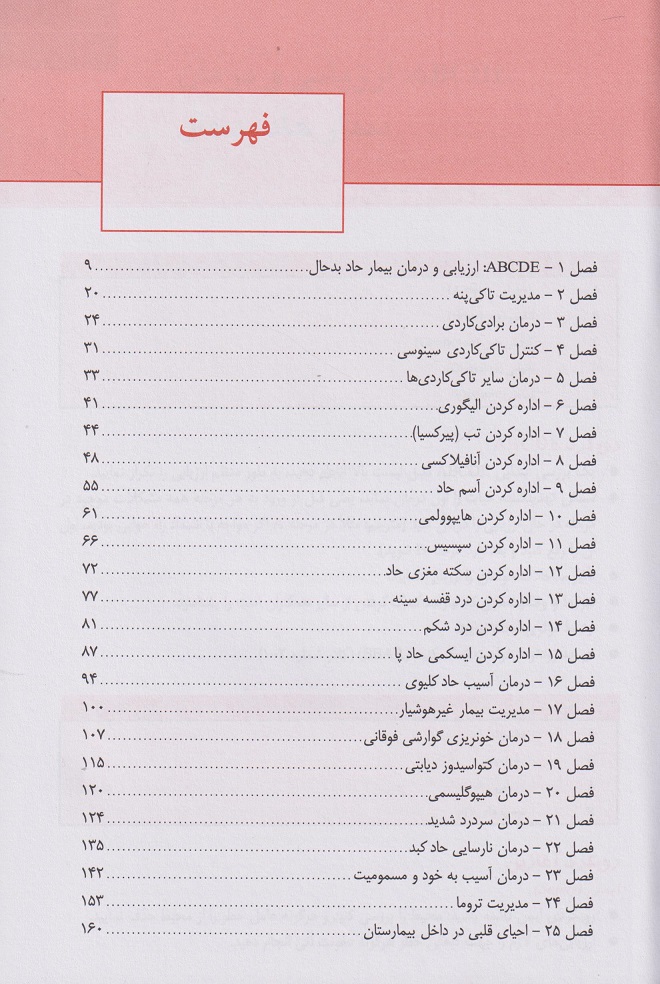 فهرست
فصل ۱ – ABCDE: ارزیابی و درمان بیمار حاد بدحال ۹
فصل ۲ – مدیریت تاکی‌پنه ۲۰
فصل ۳ – درمان برادی‌کاردی ۲۴
فصل ۴ – کنترل تاکی‌کاردی سینوسی ۳۱
فصل ۵ – درمان سایر تاکی‌کاردی‌ها ۳۳
فصل ۶ – اداره کردن الیگوری ۴۱
فصل ۷ – اداره کردن تب (پیرکسیا) ۴۴
فصل ۸ – اداره کردن آنافیلاکسی ۴۸
فصل ۹ – اداره کردن آسم حاد ۵۵
فصل ۱۰ – اداره کردن هایپوولمی ۶۱
فصل ۱۱ – اداره کردن سپسیس ۶۶
فصل ۱۲ – اداره کردن سکته مغزی حاد ۷۲
فصل ۱۳ – اداره کردن درد قفسه سینه ۷۷
فصل ۱۴ – اداره کردن درد شکم ۸۱
فصل ۱۵ – اداره کردن ایسکمی حاد پا ۸۷
فصل ۱۶ – درمان آسیب حاد کلیوی ۹۴
فصل ۱۷ – مدیریت بیمار غیرهوشیار ۱۰۰
فصل ۱۸ – درمان خونریزی گوارشی فوقانی ۱۰۷
فصل ۱۹ – درمان کتواسیدوز دیابتی ۱۱۵
فصل ۲۰ – درمان هیپوگلیسمی ۱۲۰
فصل ۲۱ – درمان سردرد شدید ۱۲۴
فصل ۲۲ – درمان نارسایی حاد کبد ۱۳۵
فصل ۲۳ – درمان آسیب به خود و مسمومیت ۱۴۲
فصل ۲۴ – مدیریت تروما ۱۵۳
فصل ۲۵ – احیای قلبی در داخل بیمارستان ۱۶۰